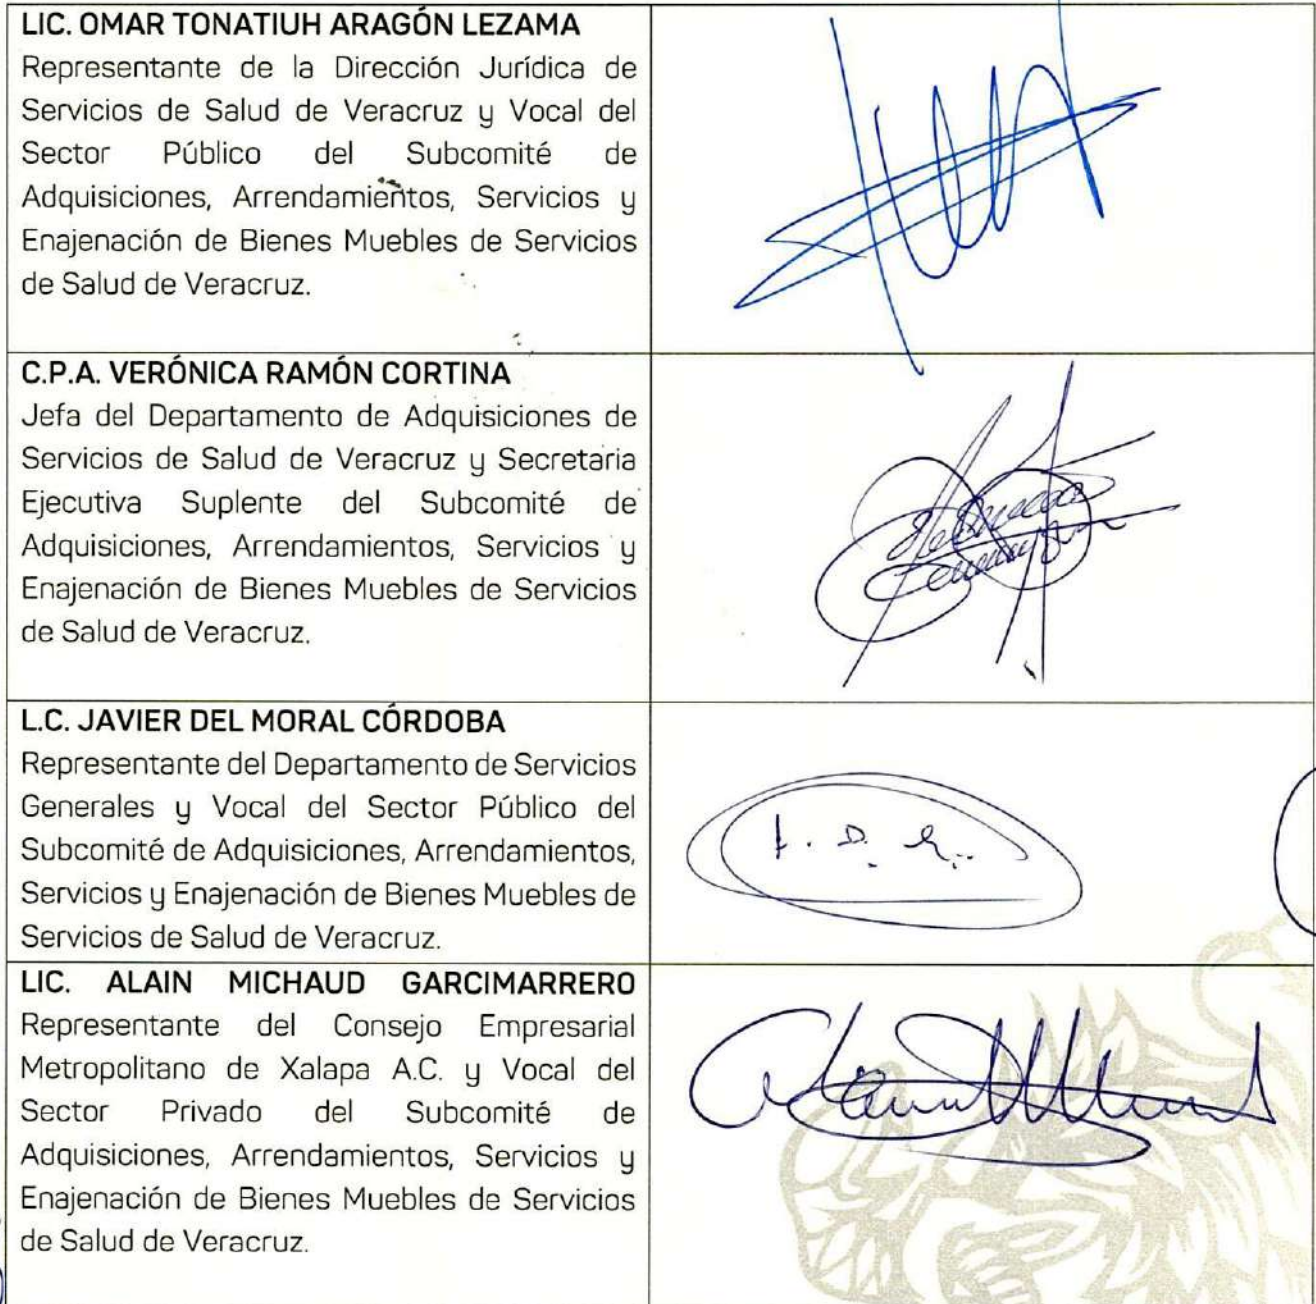 LIC. OMAR TONATIUH ARAGÓN LEZAMA
Representante de la Dirección Jurídica de
Servicios de Salud de Veracruz y Vocal del
Sector Público del Subcomité de
Adquisiciones, Arrendamientos, Servicios y
Enajenación de Bienes Muebles de Servicios
de Salud de Veracruz.
C.P.A. VERÓNICA RAMÓN CORTINA
Jefa del Departamento de Adquisiciones de
Servicios de Salud de Veracruz y Secretaria
Ejecutiva Suplente del Subcomité de
Adquisiciones, Arrendamientos, Servicios y
Enajenación de Bienes Muebles de Servicios
de Salud de Veracruz.
L.C. JAVIER DEL MORAL CÓRDOBA
Representante del Departamento de Servicios
Generales y Vocal del Sector Público del
Subcomité de Adquisiciones, Arrendamientos,
Servicios y Enajenación de Bienes Muebles de
Servicios de Salud de Veracruz.
LIC. ALAIN MICHAUD GARCIMARRERO
Representante del Consejo Empresarial
Metropolitano de Xalapa A.C. y Vocal del
Sector Privado del Subcomité de
Adquisiciones, Arrendamientos, Servicios y
Enajenación de Bienes Muebles de Servicios
de Salud de Veracruz.